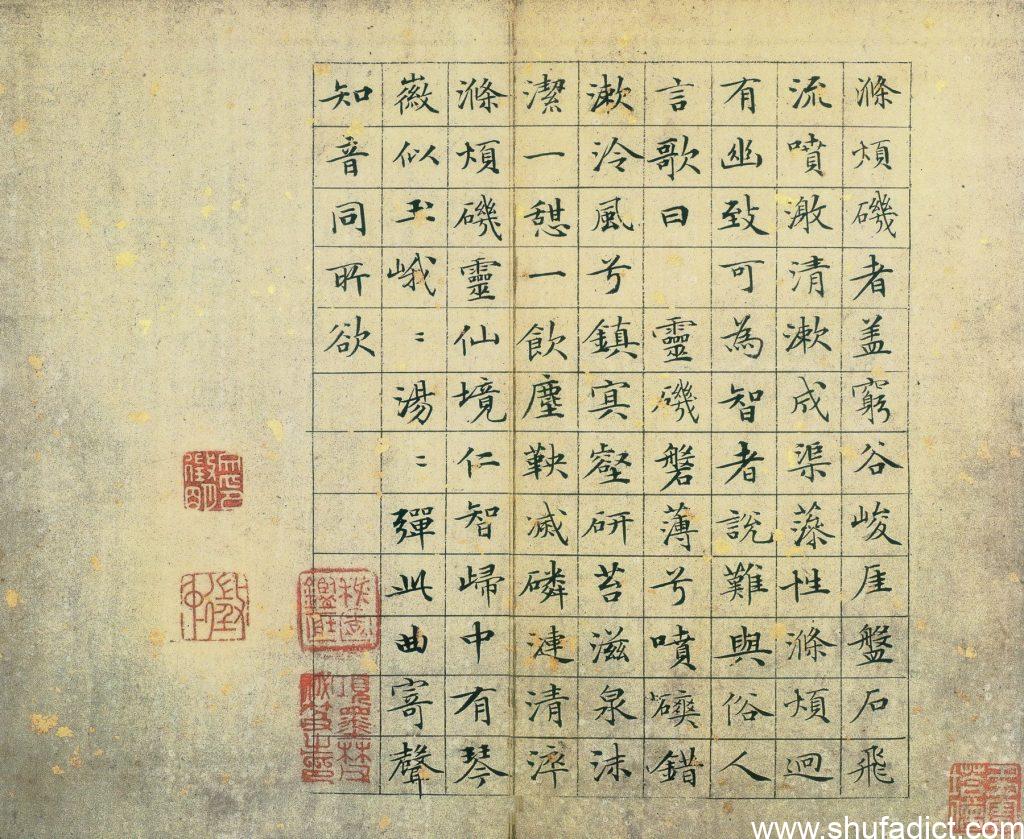 滌煩磯者盖窮谷峻厓盤石飛
流噴激清漱成渠藻性滌煩迴
有幽致可為智者說難與俗人
言歌曰 靈磯磐薄兮噴錯
漱泠風兮鎮冥壑研苔滋泉沫
潔一憇一飲塵鞅減磷漣清淬
滌煩磯靈仙境仁智歸中有琴
徽似玉峨〻湯〻彈此曲寄聲
知音同所欲
www.shufadict.com